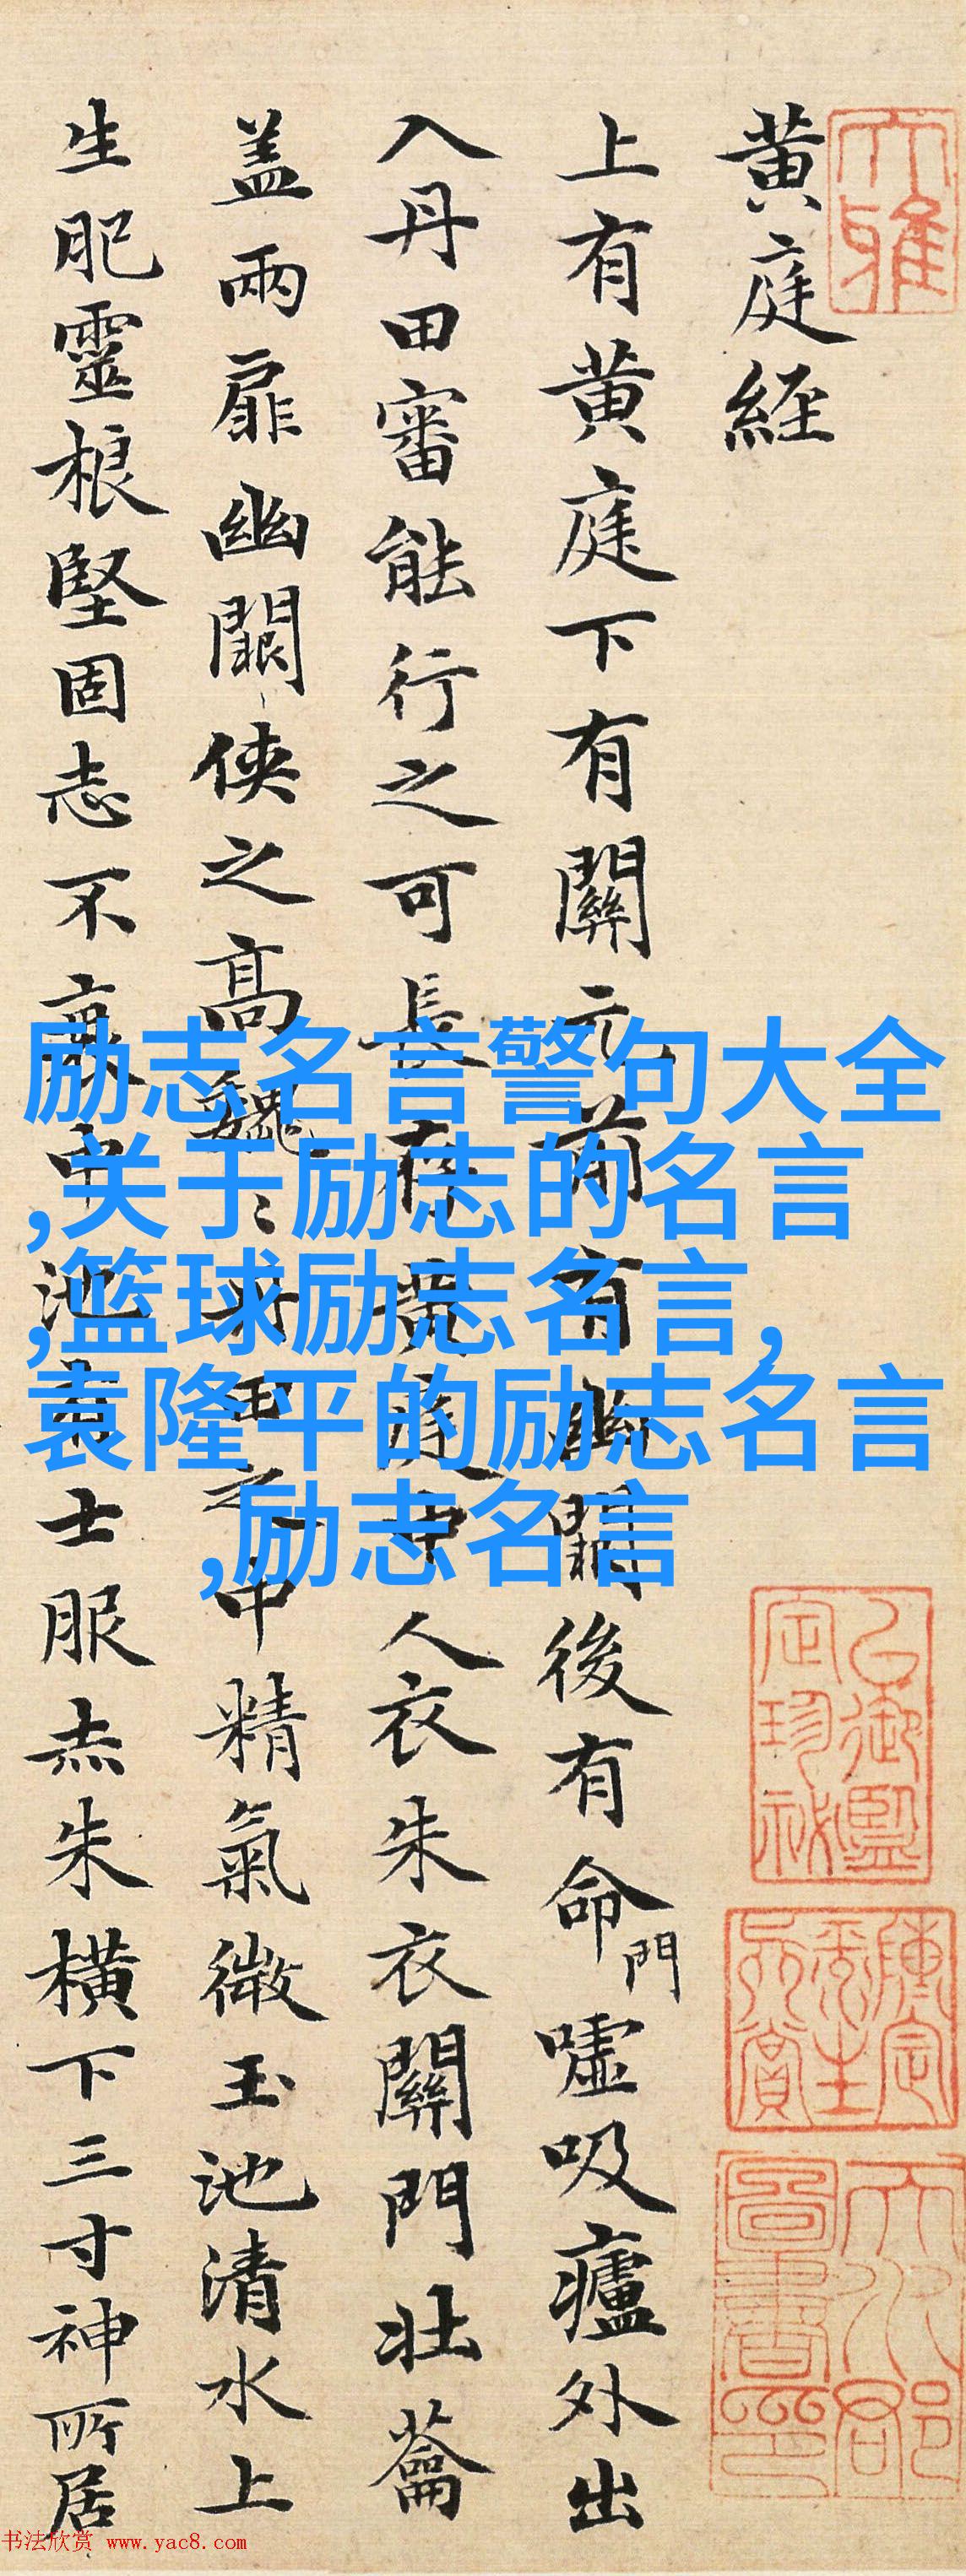 大雅
黄庭経
上有黄庭下有關元前有幽闕後有命門嘘吸廬外出
入丹田審能行之可長存黄庭中人衣朱衣關門壯蘥
盖兩扉幽闕俠之高魏〻丹田之中精氣微玉池清水上
生肥靈根堅固志不衰中池有士服赤朱横下三寸神所居
励志名言警句大全
,关于励志的名言
,篮球励志名言,
袁隆平的励志名言
,励志名言
书法欣赏 www.yac8.com